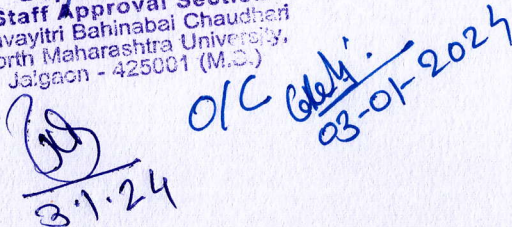 Staff Approval Section
Kavayitri Bahinabai Chaudhari
North Maharashtra University,
Jalgaon - 425001 (M.S.)
O/C
03-01-2024
3.1.24